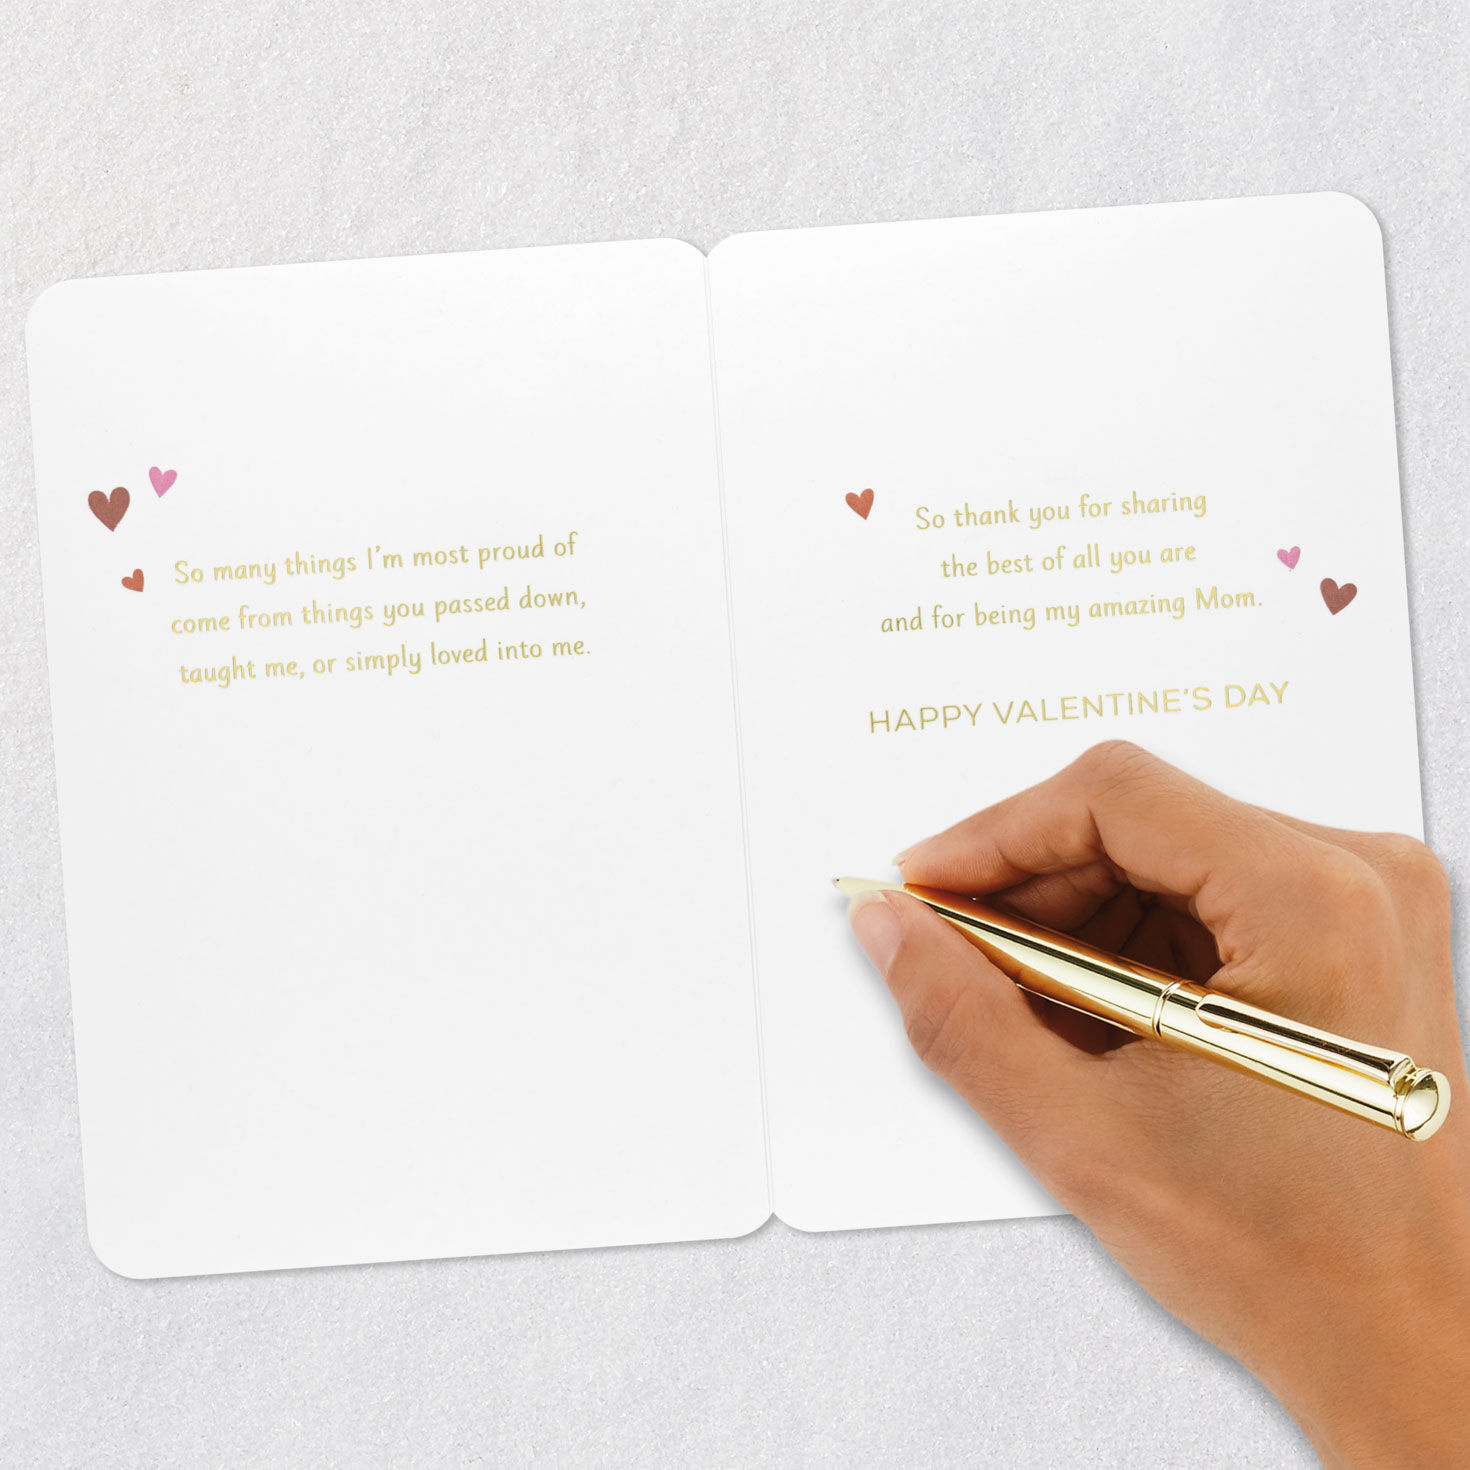 So many things I'm most proud of
come from things you passed down,
taught me, or simply loved into me.
So thank you for sharing
the best of all you are
and for being my amazing Mom.
HAPPY VALENTINE'S DAY